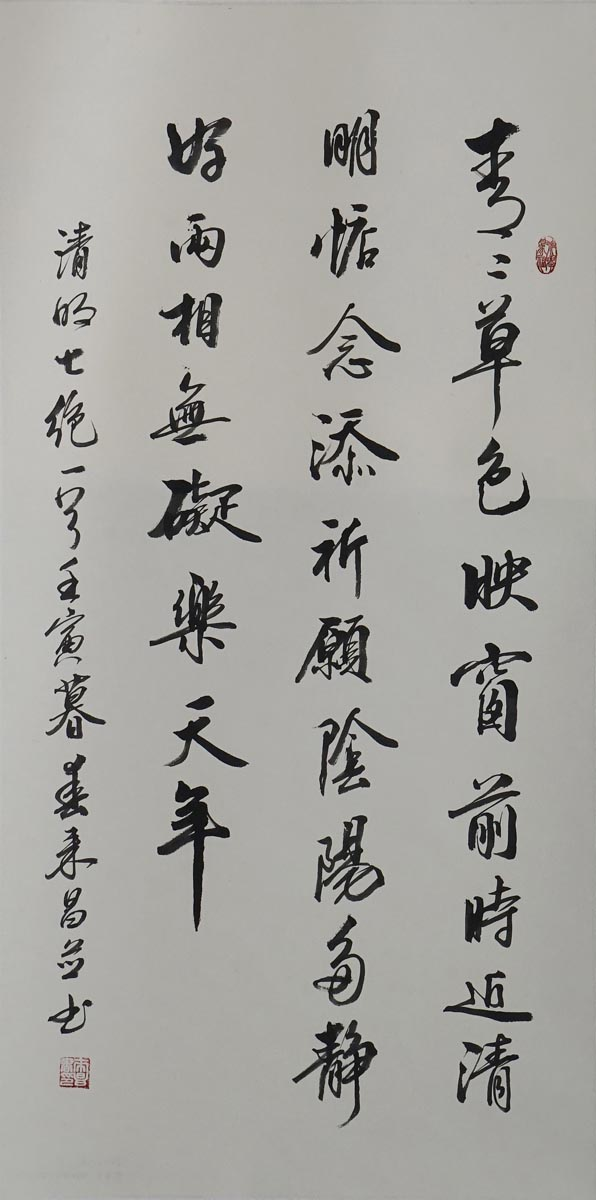 青〻草色映窗前時近清
明惦念添祈願陰陽多静
好兩相無礙樂天年
清明七絶一首壬寅暮春来昌并书